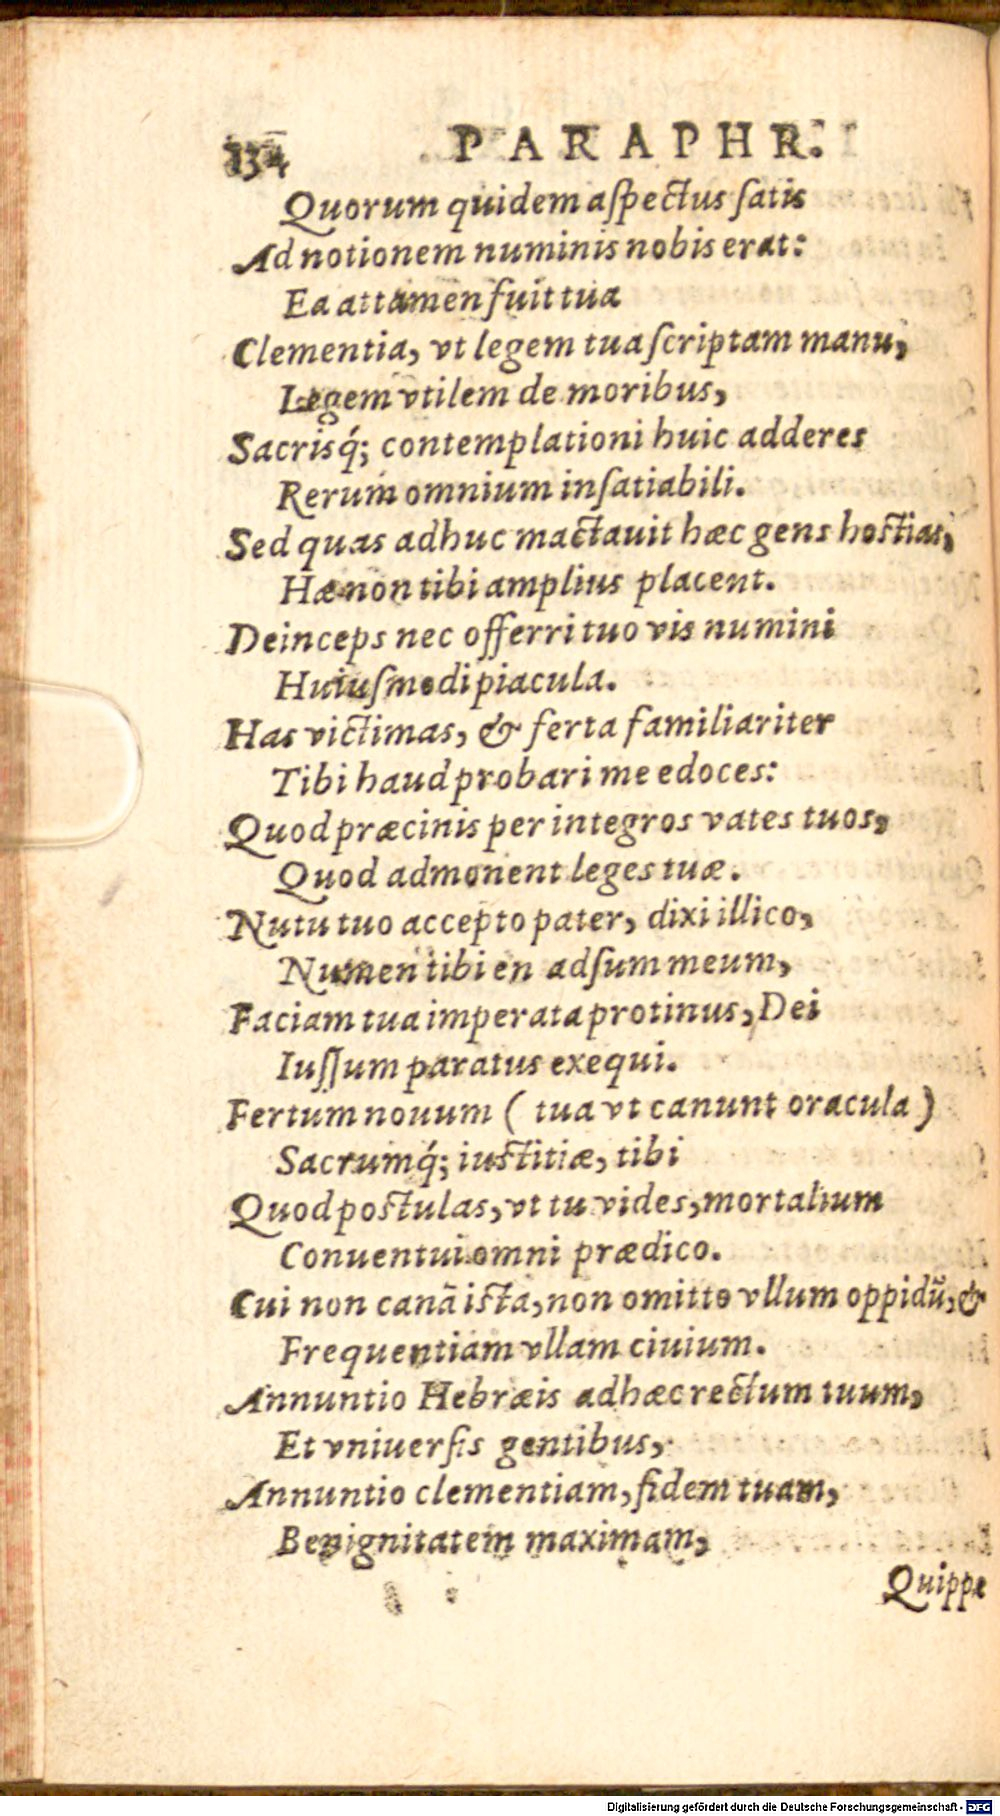 134 PARAPHR.
Quorum quidem aſpectus ſatis
Ad notionem numinis nobis erat:
Ea attamen fuit tua
Clementia, vt legem tua ſcriptam manu,
Legem vtilem de moribus,
Sacrisq́; contemplationi huic adderes
Rerum omnium inſatiabili.
Sed quas adhuc mactauit hæc gens hostias,
Hæ non tibi amplius placent.
Deinceps nec offerri tuo vis numini
Huiuſmodi piacula.
Has victimas, & ferta familiariter
Tibi haud probari me edoces:
Quod præcinis per integros vates tuos,
Quod admonent leges tuæ.
Nutu tuo accepto pater, dixi illico,
Numen tibi en adſum meum,
Faciam tua imperata protinus, Dei
Iuſſum paratus exequi.
Fertum nouum ( tua vt canunt oracula )
Sacrumq́; iustitiæ, tibi
Quod postulas, vt tu vides, mortalium
Conuentui omni prædico.
Cui non canã ista, non omitto vllum oppidũ, &
Frequentiam vllam ciuium.
Annuntio Hebræis adhæc rectum tuum,
Et vniuerſis gentibus,
Annuntio clementiam, fidem tuam,
Benignitatem maximam,
Quippe
Digitalisierung gefördert durch die Deutsche Forschungsgemeinschaft - DFG